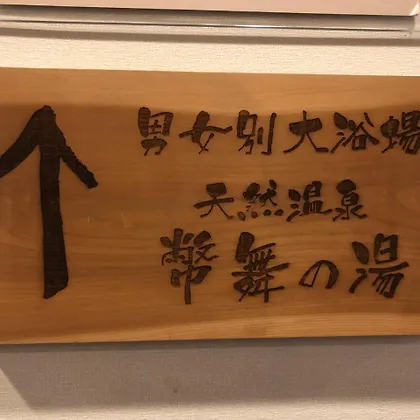 男女別大浴場
天然温泉
幣舞の湯